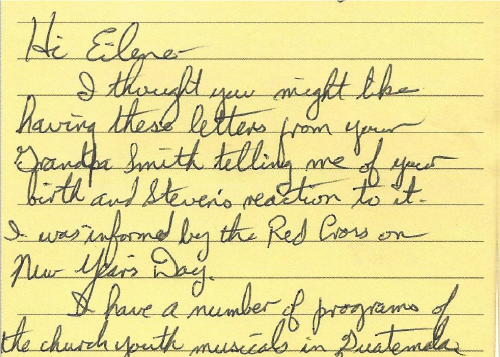 Hi Eilene-
I thought you might like
having these letters from your
Grandpa Smith telling me of your
birth and Steven's reaction to it.
I was informed by the Red Cross on
New Year's Day.
I have a number of programs of
the church youth musicals in Guatemala